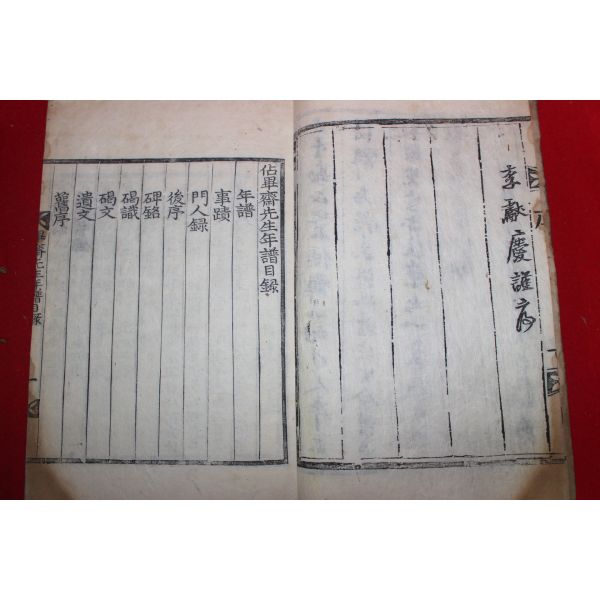 李獻慶謹序
佔畢齋先生年譜目錄
年譜
事蹟
門人録
後序
碑銘
碣識
碣文
遺文
舊序
畢齋先生年譜目錄